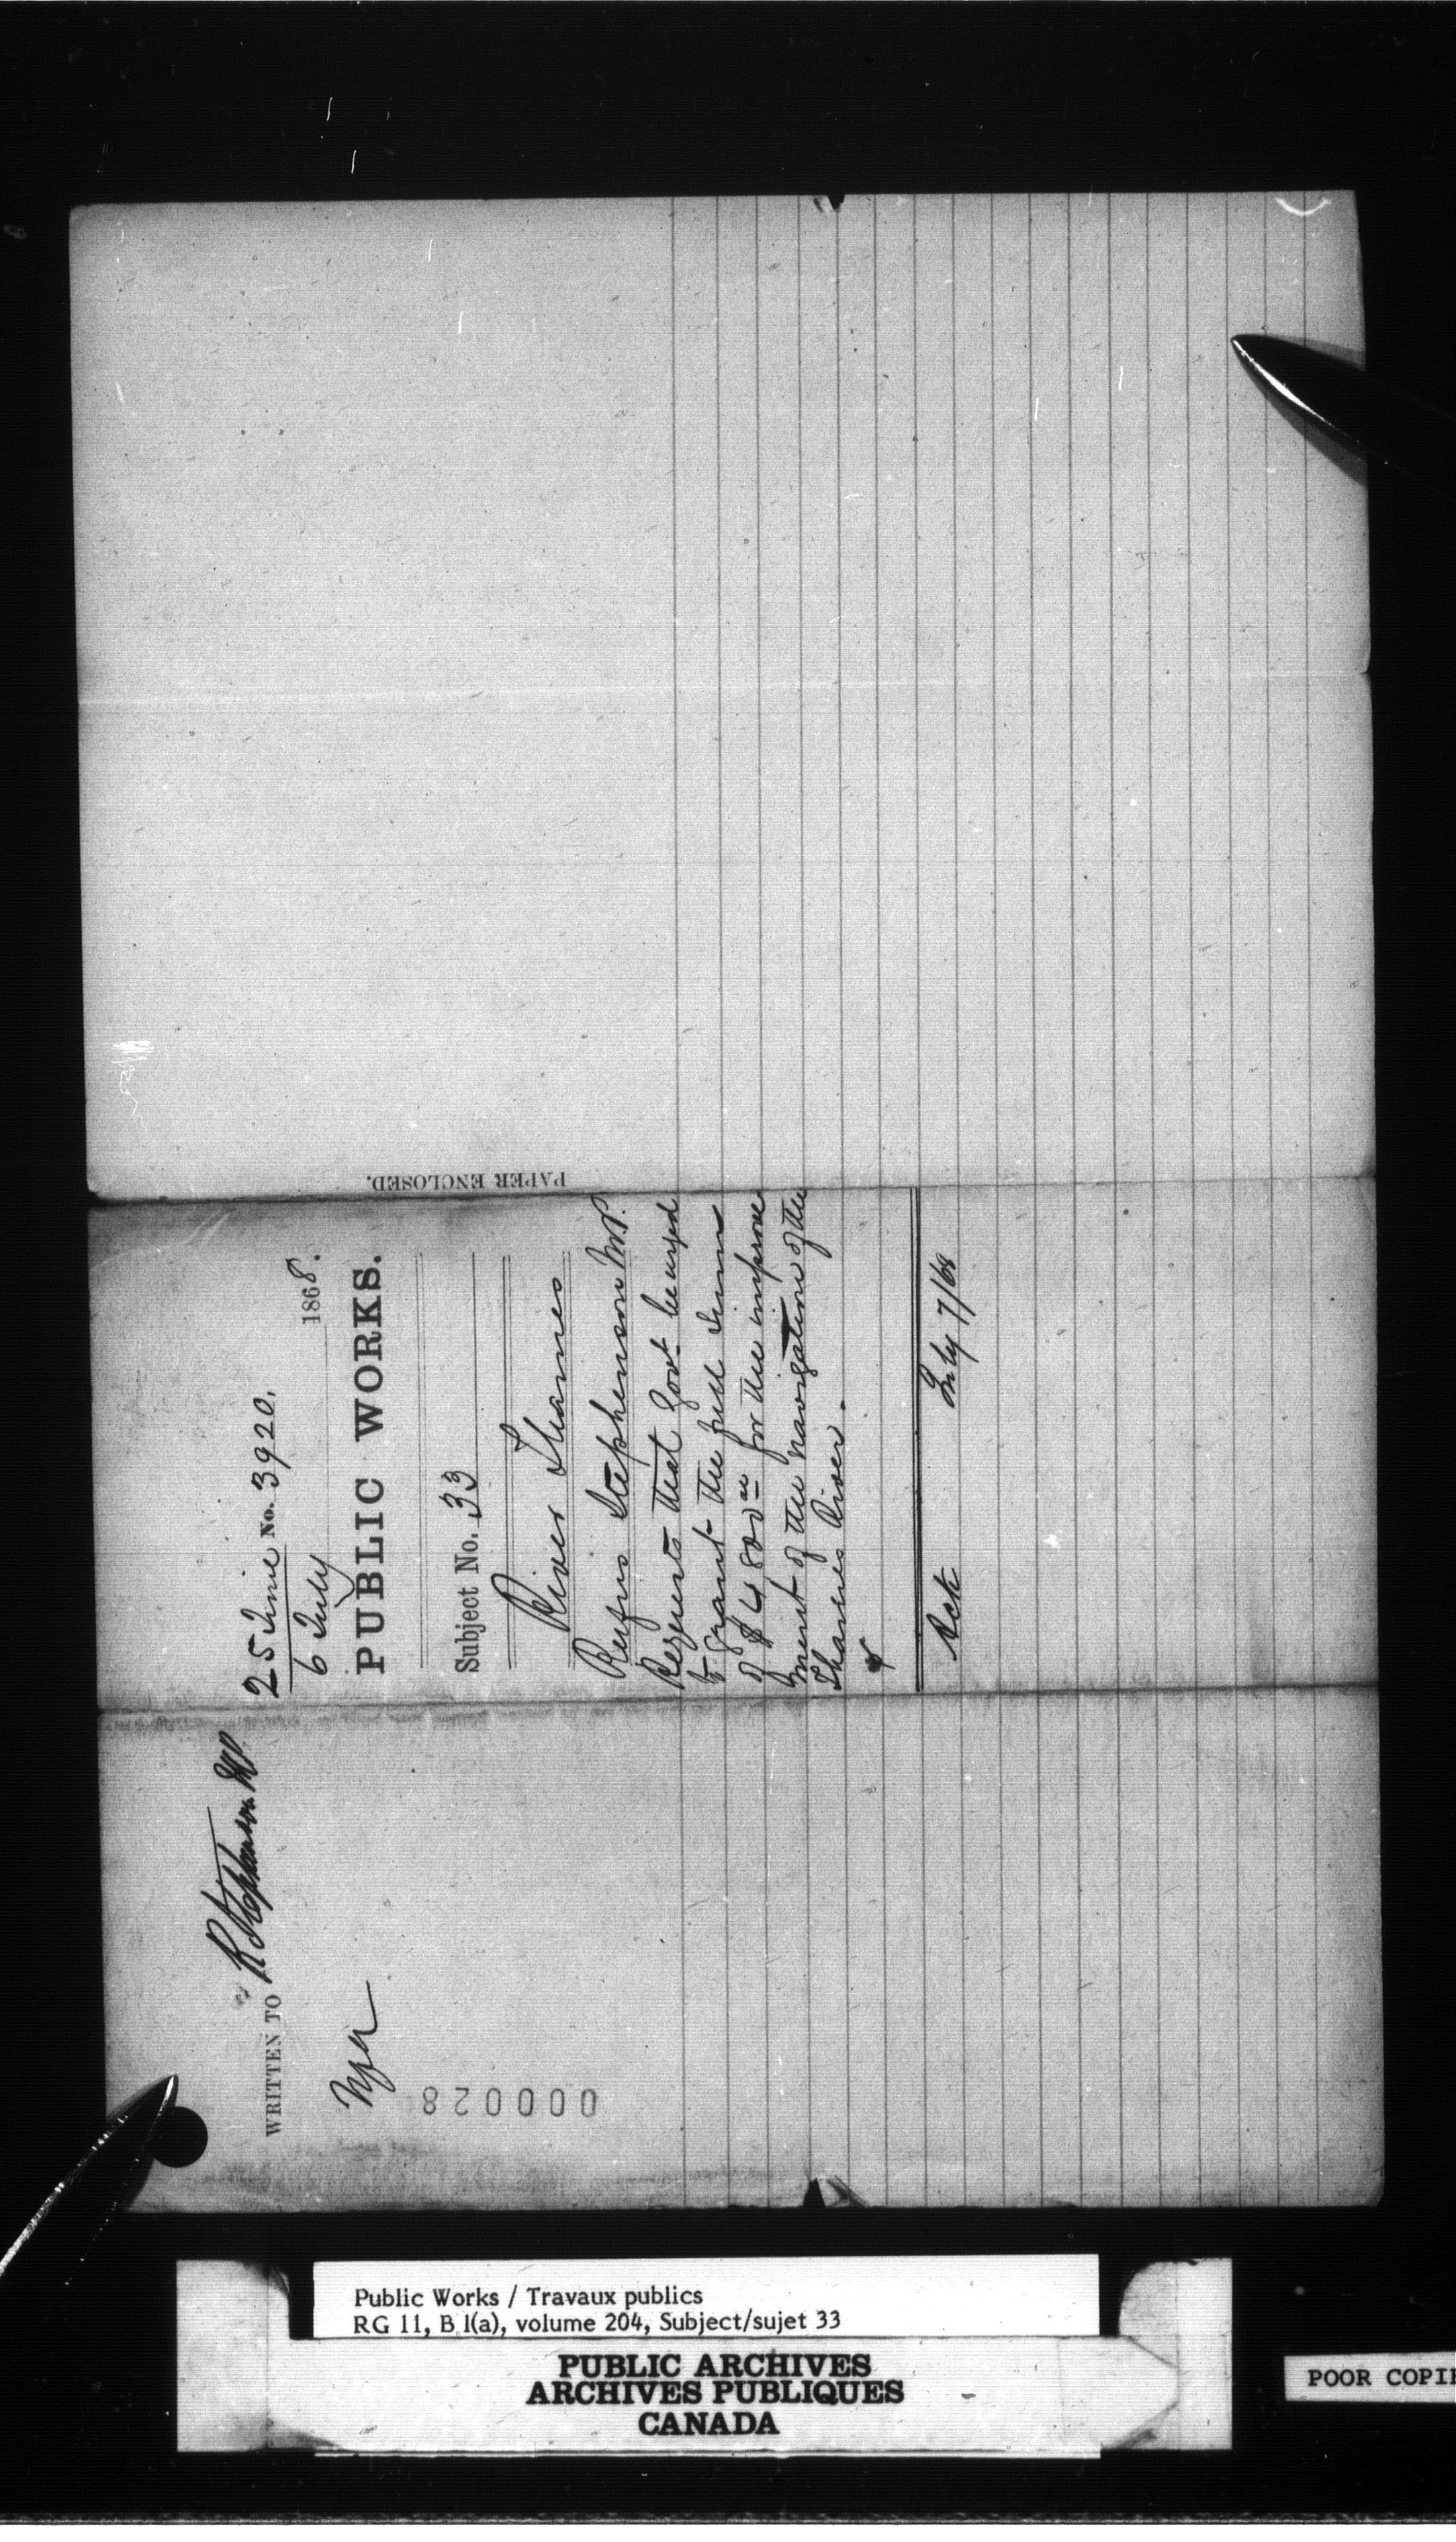 WRITTEN TO R Stephenson MP
000028
25 June No. 3920.
6 July 1868.
PUBLIC WORKS.
Subject No. 33
River Thames
Rufus Stephenson M.P.
Requests that Govt be urged
to grant the full sum
of $4800 for the improve
ment of the navigation of the
Thames River.
Ack July 7/68
PAPER ENCLOSED.
Public Works / Travaux publics
RG 11, B 1(a), volume 204, Subject/sujet 33
PUBLIC ARCHIVES
ARCHIVES PUBLIQUES
CANADA
POOR COPI